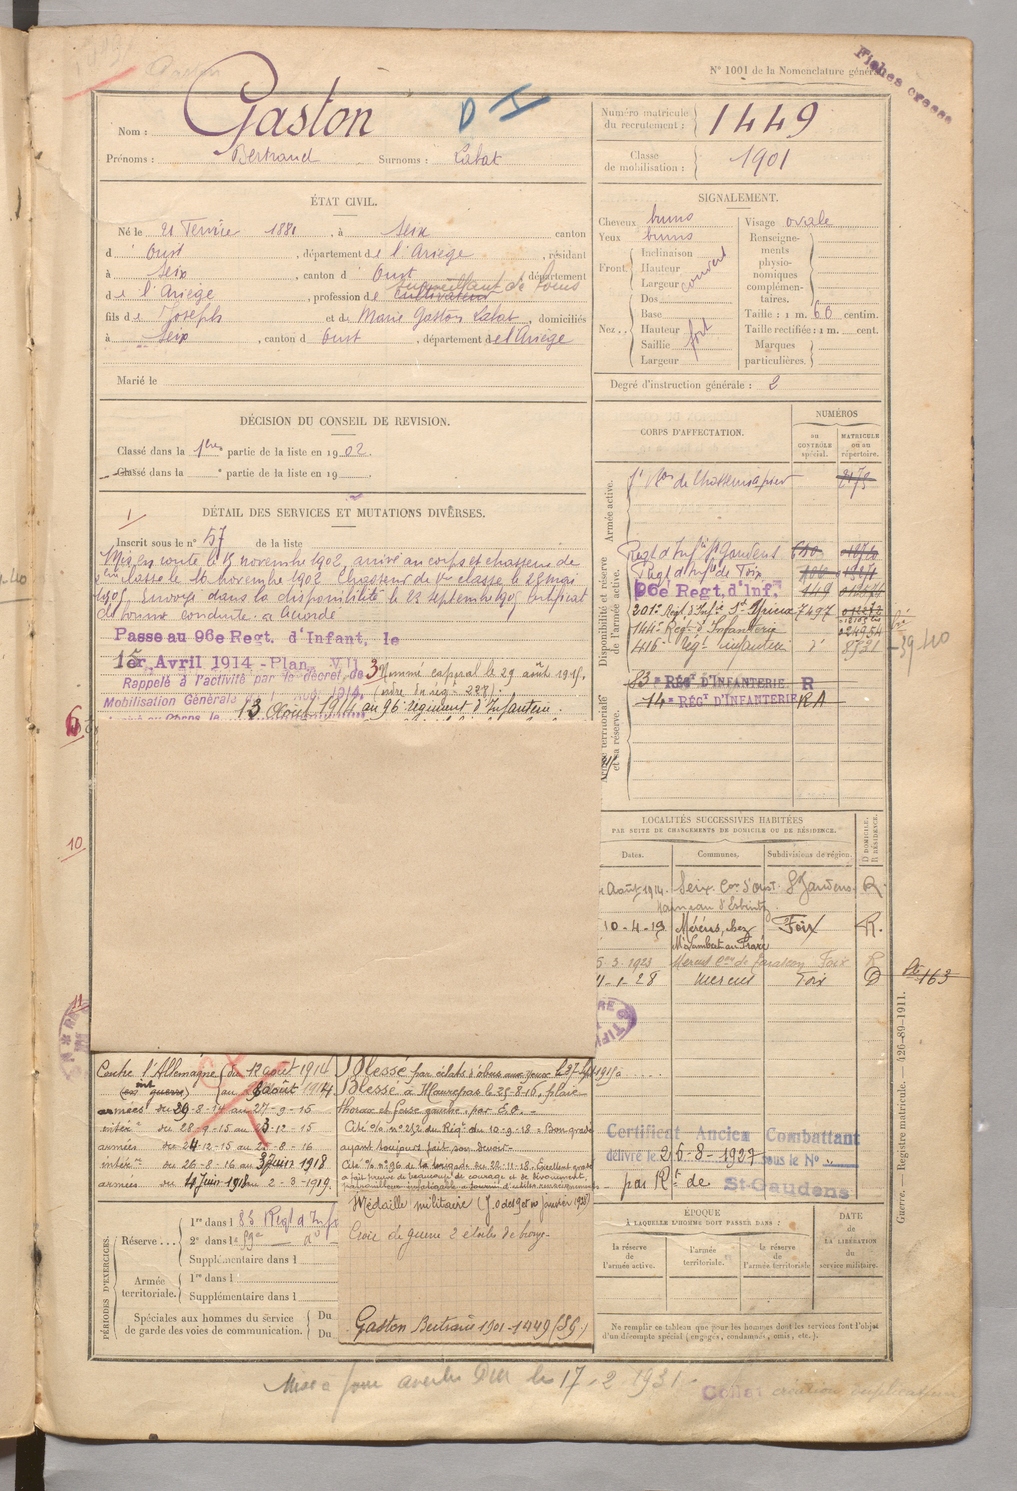 N° 1001 de la Nomenclature générale
Fiches
D
Nom : Gaston
Prénoms : Bertrand Surnoms : Labat
Numéro matricule du recrutement : 1449
Classe de mobilisation : 1901
ÉTAT CIVIL.
Né le 21 Février 1881, à Seix canton
d' Oust, département de l'Ariège, résidant
à Seix, canton d' Oust département
de l'Ariège, profession de cultivateur
surveillant de
fils de Joseph et de Marie Gaston Labat, domiciliés
à Seix, canton d' Oust, département de l'Ariège
Marié le
SIGNALEMENT.
Cheveux bruns
Yeux bruns
Front. Inclinaison
Hauteur
Largeur
couvert
Nez.. Dos
Base
Hauteur
Saillie
Largeur
fort
Visage ovale
Renseignements physionomiques complémentaires.
Taille : 1 m. 60 centim.
Taille rectifiée : 1 m. cent.
Marques particulières.
Degré d'instruction générale : 2
DÉCISION DU CONSEIL DE REVISION.
Classé dans la 1ère partie de la liste en 1902.
Classé dans la e partie de la liste en 19
DÉTAIL DES SERVICES ET MUTATIONS DIVERSES.
Inscrit sous le n° 57 de la liste
Mis en route le 15 novembre 1902, arrivé au corps et chasseur de
2ème classe le 16 novembre 1902 Chasseur de 1re classe le 23 mai
1905 Envoyé dans la disponibilité le 23 septembre 1905 Certificat
de bonne conduite : Accordé
Passe au 96e Regt. d'Infant. le
1er Avril 1914 - Plan VII
Rappelé à l'activité par le décret de
Mobilisation Générale
Nommé caporal le 29 août 1915.
13 Août 1914 au 96e régiment d'Infanterie.
10
11
CORPS D'AFFECTATION.
NUMÉROS
AU CONTRÔLE spécial.
MATRICULE OU AU répertoire.
Armée active.
Disponibilité et réserve de l'armée active.
Armée territoriale et sa réserve.
2175
Régt d'Infie St Gaudens
Régt d'Infie de Foix
96e Regt. d'Inf. 149
201e Régt d'Infie St Yrieix 7497
144e Régt d'Infanterie 024954
416e Régt Infanterie do 8531
39-40
83e RÉGt D'INFANTERIE R
14e RÉGt D'INFANTERIE RA
LOCALITÉS SUCCESSIVES HABITÉES
PAR SUITE DE CHANGEMENTS DE DOMICILE OU DE RÉSIDENCE.
Dates. Communes. Subdivisions de région. D DOMICILE. R RÉSIDENCE.
Août 1914. Seix Con d'Oust. St Gaudens. R.
10-4-19 Mérens, chez Foix R.
5-3-1923 Mercus Con de Tarascon Foix R
1-28 Mercus Foix D
163
Contre l'Allemagne du 12 août 1914
au 28 août 1914
armées du 29-8-14 au 27-9-15
intérr du 28-9-15 au 23-12-15
armées du 24-12-15 au 25-8-16
intérr du 26-8-16 au 3 Juin 1918
armées du 4 Juin 1918 au 2-3-1919.
Blessé par éclats d'obus aux yeux
Blessé à Maurepas le 25-8-16, plaie
thorax et fesse gauche, par E.O. -
Cité O/ n° 252 du Régt du 10-9-18 - Bon gradé
ayant toujours fait son devoir -
Cité O/ n° 96 de la brigade du 22-11-18. Excellent gradé
a fait preuve de beaucoup de courage et de dévouement,
Médaille militaire
Croix de guerre 2 étoiles de bronze -
Gaston Bertrand 1901 - 1449 (SG)
Certificat Ancien Combattant
délivré le 26-8-1927 sous le N°
par Rt de St-Gaudens
PÉRIODES D'EXERCICES.
Réserve... 1re dans l 83 Régt d'Inf
2e dans le 59e do
Supplémentaire dans l
Armée territoriale. 1re dans l
Supplémentaire dans l
Spéciales aux hommes du service de garde des voies de communication. Du
Du
ÉPOQUE
À LAQUELLE L'HOMME DOIT PASSER DANS :
la réserve de l'armée active.
l'armée territoriale.
la réserve de l'armée territoriale
DATE DE LA LIBÉRATION du service militaire.
Ne remplir ce tableau que pour les hommes dont les services font l'objet d'un décompte spécial (engagés, condamnés, omis, etc.).
Guerre. — Registre matricule. — 426-89-1911.
Mise à jour avec les le 17-2-1931.